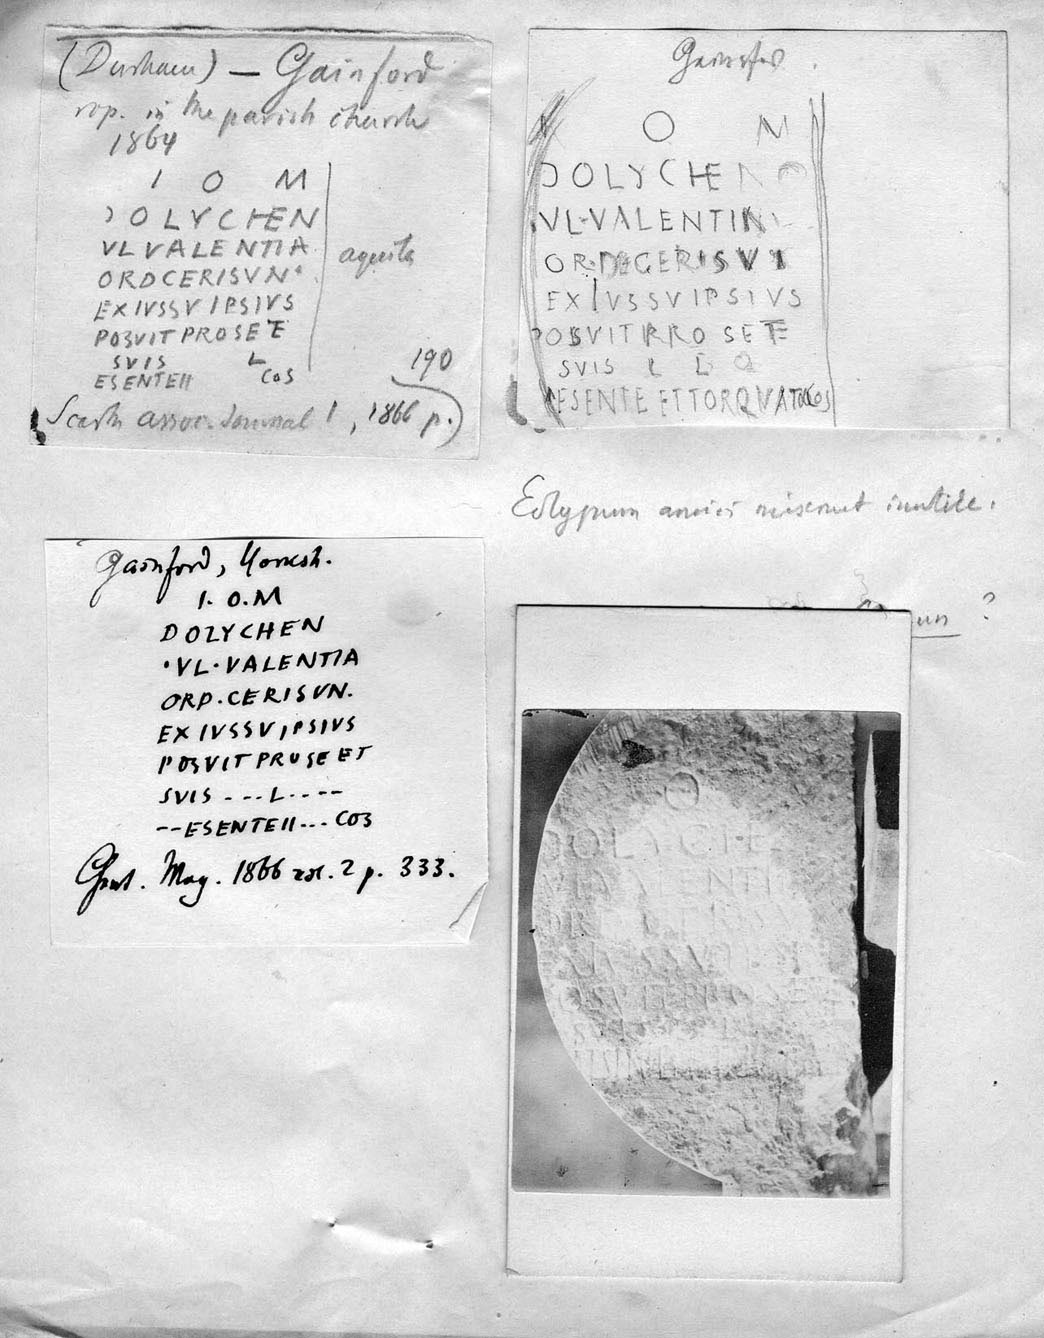 (Durham) — Gainford
rep. in the parish church
1864
I O M
DOLYCHEN
VL VALENTIA
ORDCERISVN
EXIVSSVIPSIVS
POSVIT PRO SE E
SVIS L
ESENTEII COS
aquila
190
assoc. Journal 1, 1866 p.)
O M
DOLYCHEN O
VL·VALENTIN
ORD CERISVI
EXIVSSVIPSIVS
POSVIT PRO SE E
SVIS L L Q
ESENTE ET TORQVATO COS
Ectypum amici miserunt inutile.
un ?
Gainford, Yoresh.
I. O. M
DOLYCHEN
·VL·VALENTIA
ORD.CERISVN.
EXIVSSVIPSIVS
POSVIT PRO SE ET
SVIS - - - L - - - -
--ESENTEII... COS
Gent. Mag. 1866 vol. 2 p. 333.
O
DOLYCHE
VLVALENTI